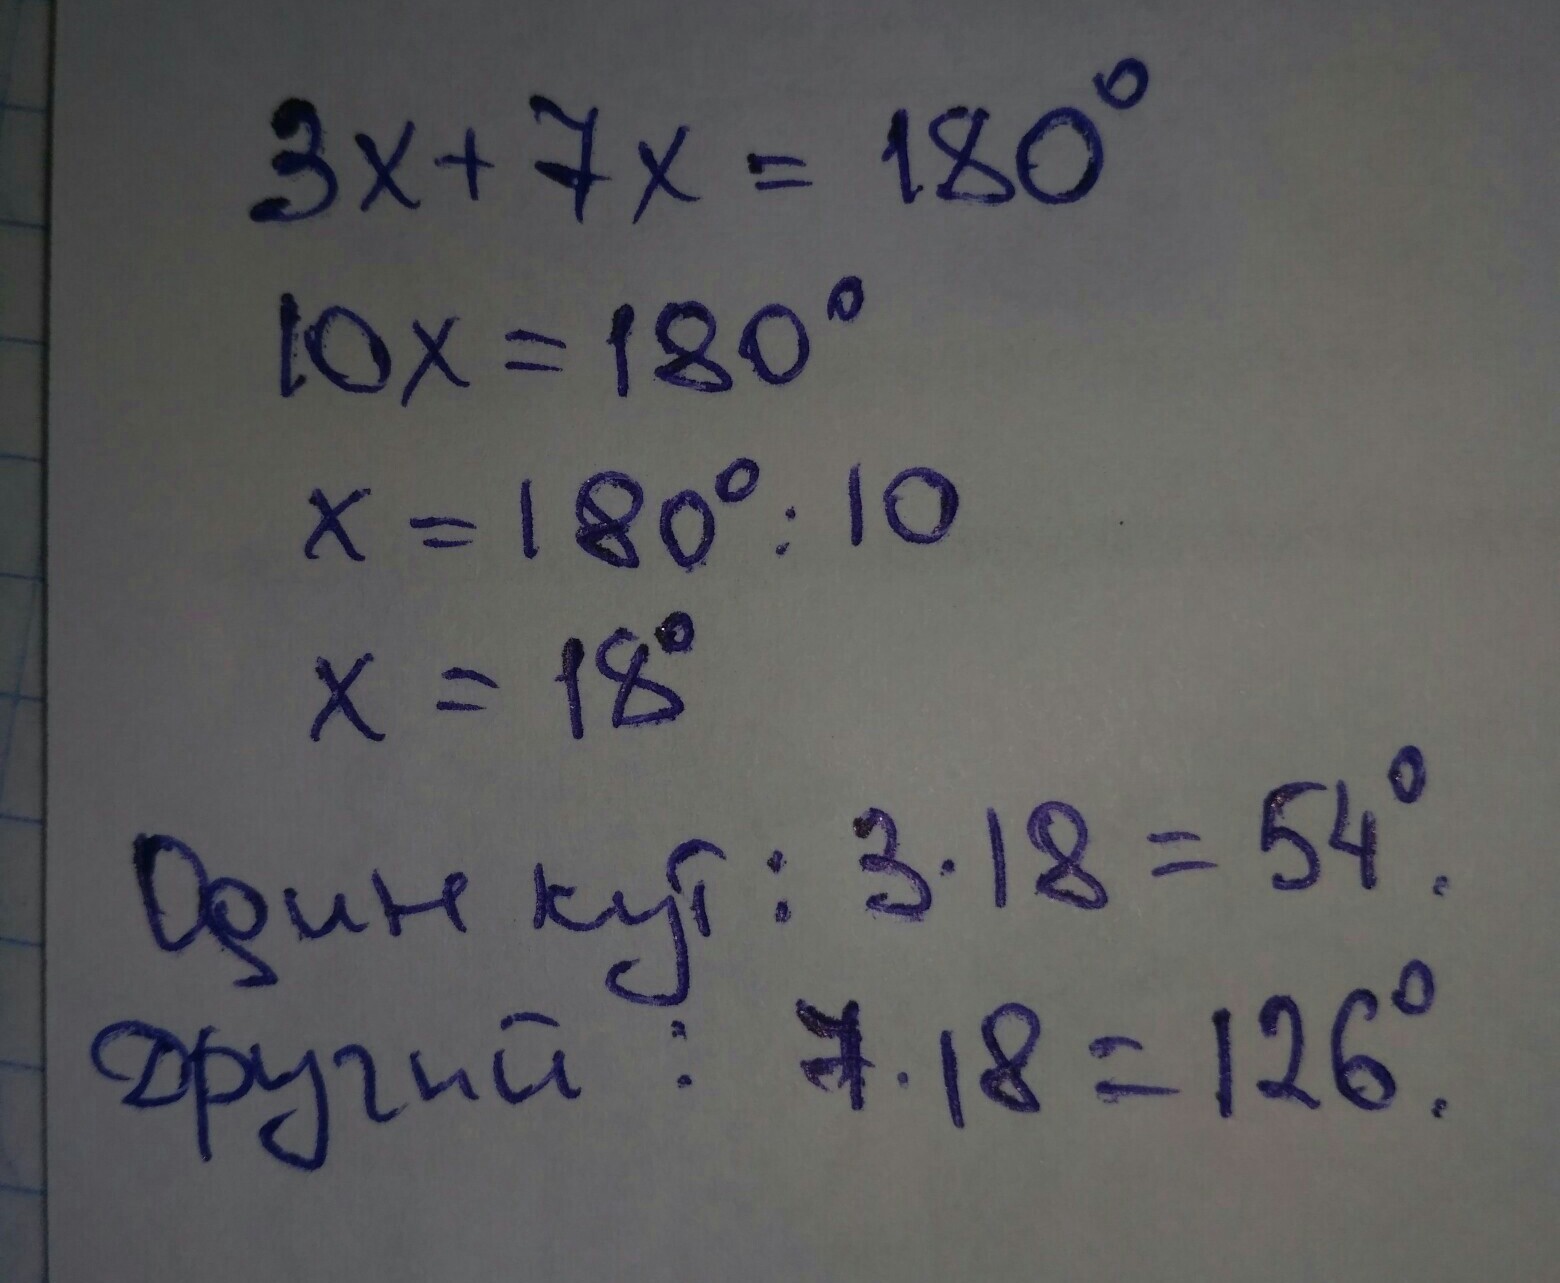 3x+7x = 180°
10x = 180°
x = 180° : 10
x = 18°
Один кут : 3·18 = 54°.
Другий : 7·18 = 126°.